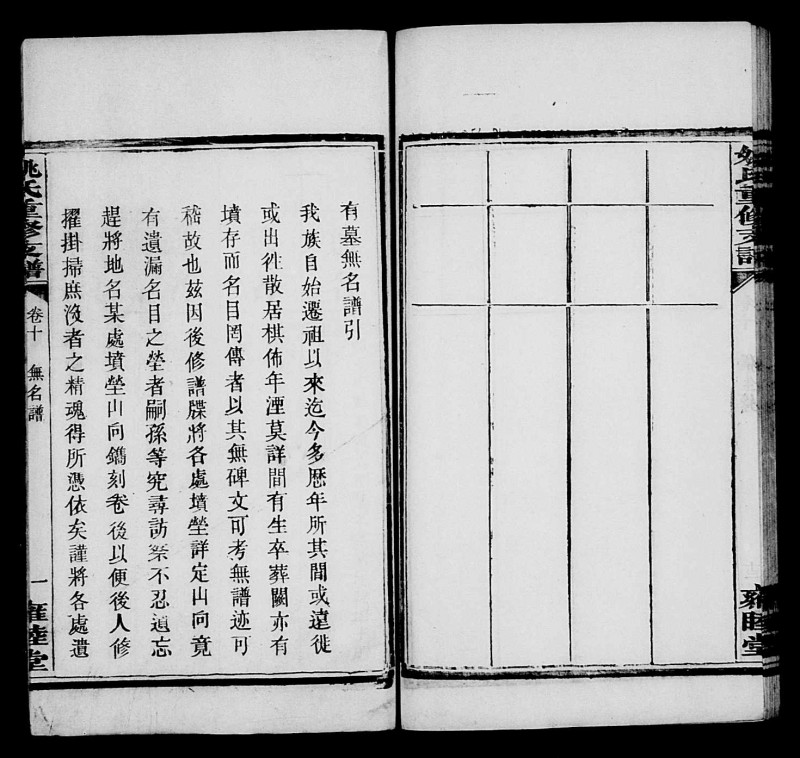 姚氏重修支譜
雍睦堂
有墓無名譜引
我族自始遷祖以來迄今多歷年所其間或遠徙
或出徃散居棋佈年湮莫詳間有生卒葬闕亦有
墳存而名目罔傳者以其無碑文可考無譜迹可
稽故也兹因後修譜牒將各處墳塋詳定山向竟
有遺漏名目之塋者嗣孫等究尋訪祭不忍遺忘
趕將地名某處墳塋山向鐫刻卷後以便後人修
擢掛掃庶没者之精魂得所憑依矣謹將各處遺
姚氏重修支譜
卷十
無名譜
一
雍睦堂